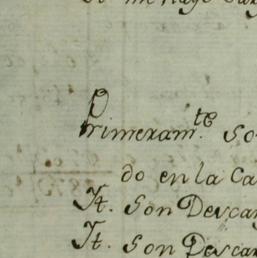 Primeram.te so
do en la Ca
It. son Descar
It. son Descar